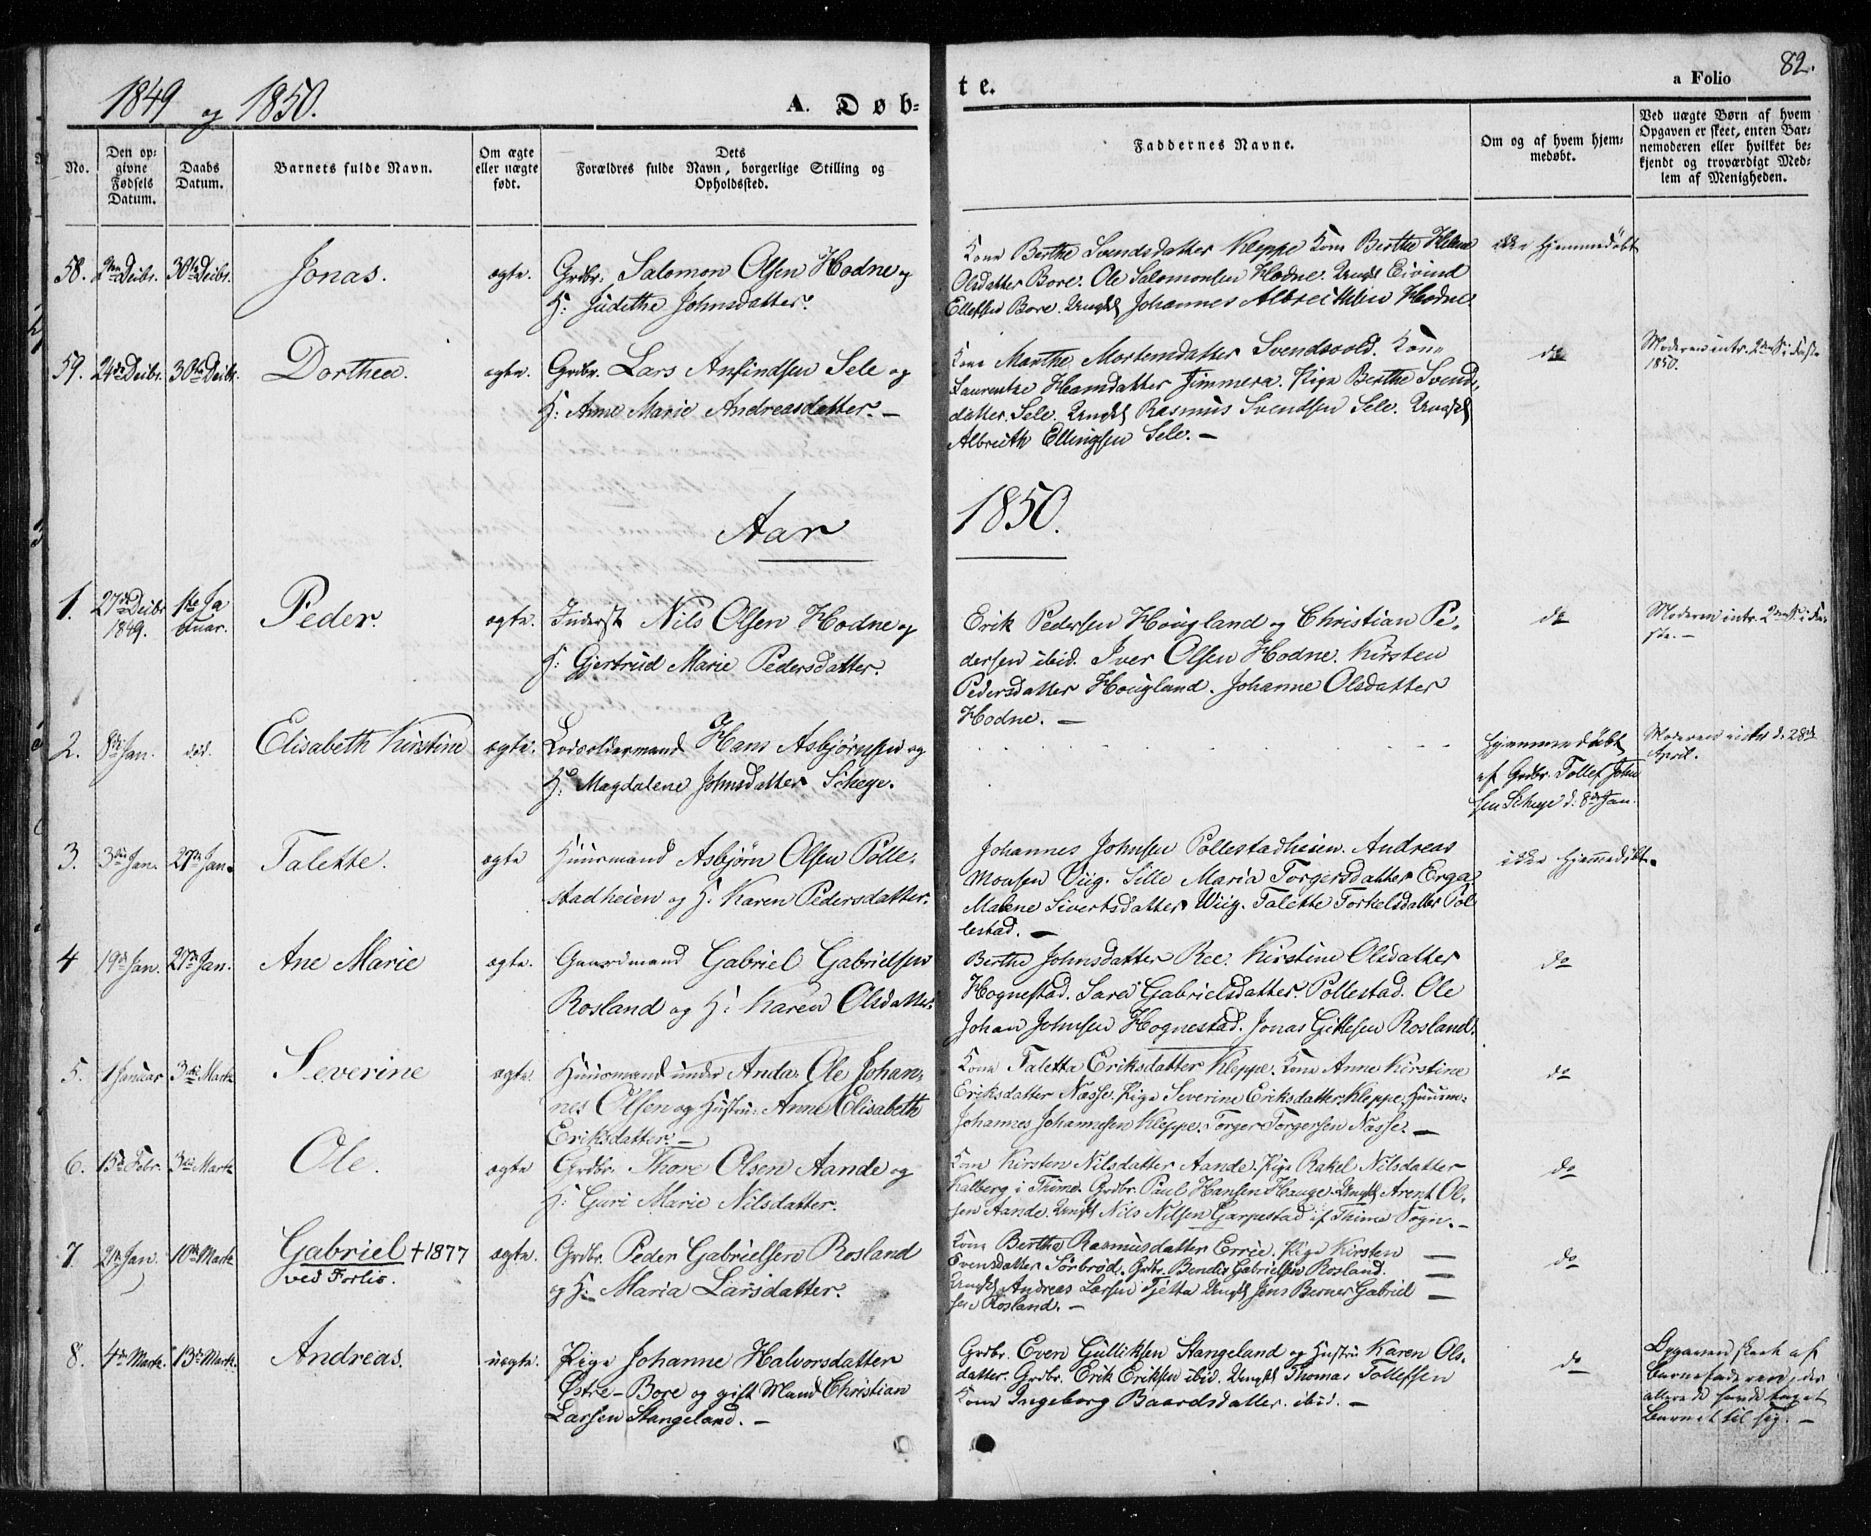 1849 og 1850.
A. Døb-
te.
a Folio
82.
No.
Den op-
givne
Fødsels
Datum.
Daabs
Datum.
Barnets fulde Navn.
Om ægte
eller uægte
født.
Dets
Forældres fulde Navn, borgerlige Stilling og
Opholdssted.
Faddernes Navne.
Om og af hvem hjem-
medøbt.
Ved uægte Børn af hvem
Opgaven er skeet, enten Bar-
nemoderen eller hvilket be-
kjendt og troværdigt Med-
lem af Menigheden.
58. Decbr. 30te Decbr. Jonas. ægte. Grdbr. Salomon Olsen Hodne og
H: Judithe Johnsdatter.
Kone Berthe Svendsdatter Kleppe Kone Berthe Helene
Olsdatter Bore. Ole Salomonsen Hodne. Ungk Eivind
Ellefsen Bore. Ungk Johannes Albrethsen Hodne
ikke hjemmedøbt
59. 24de Decbr. 30te Decbr. Dorthea. ægte. Grdbr. Lars Anfindsen Sele og
H: Anne Marie Andreasdatter. –
Kone Marthe Mortensdatter Svendsvold. Kone
Laurentze Hansdatter Pige Berthe Svends
datter Sele. Ungk Rasmus Svendsen Sele. Ungk
Albreth Ellingsen Sele. –
do
Moderen intr. 2den S. i Faste
1850.
Aar
1850.
1. 27de Decbr 1849. 1ste Ja
nuar. Peder. ægte. Inderst Nils Olsen Hodne og
H: Gjertrud Marie Pedersdatter.
Erik Pedersen Hougland og Christian Pe-
dersen ibid. Iver Olsen Hodne. Kirsten
Pedersdatter Hougland. Johanne Olsdatter
Hodne. –
do
Moderen intr. 2den S. i Fa-
ste. –
2. 8de Jan. død. Elisabeth Kirstine ægte. Hans Asbjørnsen og
H: Magdalene Johnsdatter Scheye.
Hjemmedøbt
af Grdbr. Tollef John
sen Scheye d. 8de Jan.
Moderen d. 28de
April.
3. 3die Jan. 27de Jan. Talette. ægte Huusmand Asbjørn Olsen Polle-
stadheien og H: Karen Pedersdatter.
Johannes Johnsen Pollestadheien. Andreas
Monsen Viig. Sille Maria Torgersdatter Erga
Malene Sivertsdatter Wiig. Talette Torkelsdatter Pol
lestad. –
ikke hjemmedøbt.
4 19de Jan. 27de Jan. Ane Marie ægte. Gaardmand Gabriel Gabrielsen
Rosland og H: Karen Olsdatter.
Berthe Johnsdatter Ree. Kirstine Olsdatter
Hognestad. Sara Gabrielsdatter Pollestad. Ole
Johan Johnsen Hognestad. Jonas Gittesen Rosland.
do
5. 1 Januar 3die Marts Severine ægte. Huusmand under Anda. Ole Johan-
nes Olsen og Hustru: Anne Elisabeth
Eriksdatter. –
Kone Taletta Eriksdatter Kleppe. Kone Anne Kirstine
Eriksdatter Næsse. Pige Severine Eriksdatter Kleppe. Huusm.
Johannes Johannesen Kleppe. Torger Torgersen Næsse. –
do
6. 15de Febr. 3die Marts Ole. ægte Grdbr. Thore Olsen Aande og
H: Guri Marie Nilsdatter.
Kone Kirsten Nilsdatter Aande. Pige Rakel Nilsdatter
Kalberg i Thime. Grdbr. Paul Hansen Hauge. Ungk Arent Ol-
sen Aande. Ungk Nils Nilsen Garpestad af Thime Sogn. –
do
7 Jan. 10de Marts Gabriel + 1877
ved Forlis. ægte. Grdbr. Peder Gabrielsen Rosland
og H: Maria Larsdatter.
Kone Berthe Rasmusdatter Errie. Pige Kirsten –
Evensdatter Sørbrød. Grdbr. Bendix Gabrielsen Rosland. –
Ungk Andreas Larsen Tjøtta Ungk Jens Berner Gabriel –
sen Rosland. –
do
8. 4de Marts 13de Marts Andreas. uægte. Pige Johanne Halvorsdatter
Østre-Bore og gift Mand Christian
Larsen Stangeland. –
Grdbr. Even Gulliksen Stangeland og Hustru Karen Ols-
datter. Grdbr. Erik Eriksen ibid. Ungk Thomas Tollefsen
Kone Ingeborg Baardsdatter ibid. –
do
Opgaven skeet af
Barnefaderen, der
allerede havde taget
Barnet til sig. –